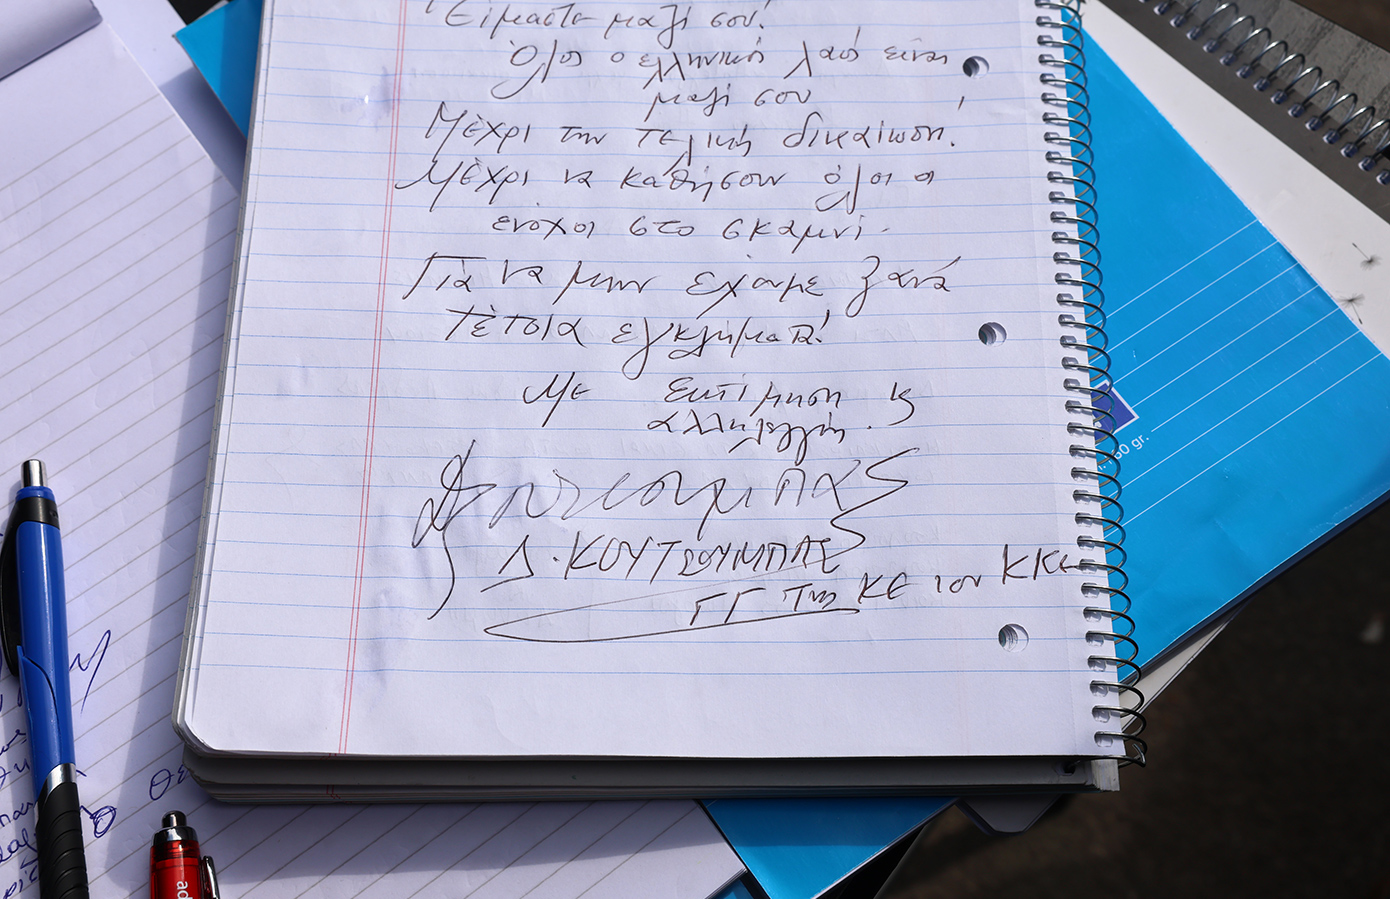 Είμαστε μαζί σου!
Όλος ο ελληνικός λαός είναι
μαζί σου
Μέχρι την τελική δικαίωση!
Μέχρι να καθήσουν όλοι οι
ένοχοι στο σκαμνί.
Για να μην έχουμε ξανά
τέτοια εγκλήματα!
Με εκτίμηση κ
αλληλεγγύη.
Δ. ΚΟΥΤΣΟΥΜΠΑΣ
ΓΓ της ΚΕ του ΚΚΕ
50 gr.
ad